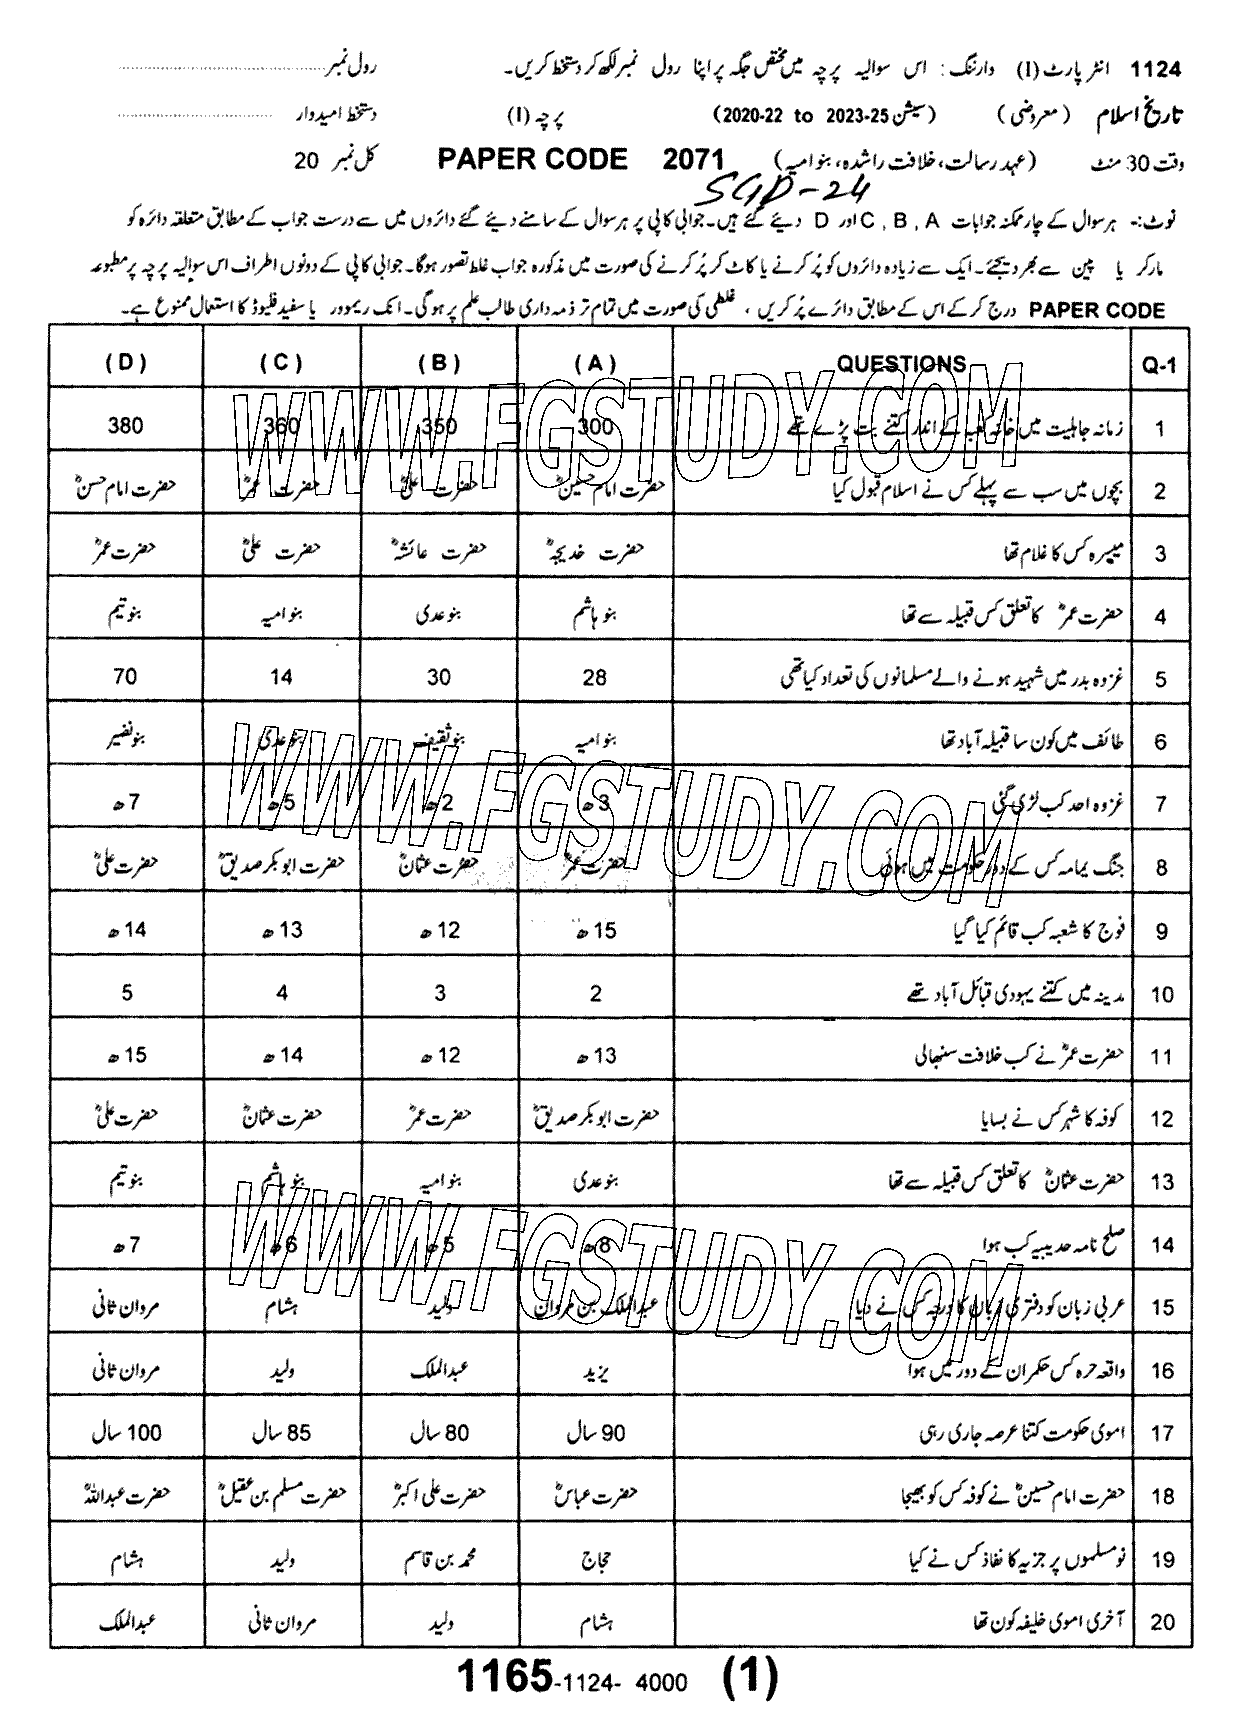 1124 انٹر پارٹ (I) وارننگ: اس سوالیہ پرچہ میں مختص جگہ پر اپنا رول نمبر لکھ کر دستخط کریں۔ رول نمبر
تاریخ اسلام (معروضی) (سیشن 2020-22 to 2023-25) پرچہ (I) دستخط امیدوار
وقت 30 منٹ (عہد رسالت، خلافت راشدہ، بنو امیہ) PAPER CODE 2071 کل نمبر 20
SGD-24
نوٹ:- ہر سوال کے چار ممکنہ جوابات A , B , C اور D دیئے گئے ہیں۔ جوابی کاپی پر ہر سوال کے سامنے دیئے گئے دائروں میں سے درست جواب کے مطابق متعلقہ دائرہ کو
مارکر یا پین سے بھر دیجئے۔ ایک سے زیادہ دائروں کو پُر کرنے یا کاٹ کر پُر کرنے کی صورت میں مذکورہ جواب غلط تصور ہوگا۔ جوابی کاپی کے دونوں اطراف اس سوالیہ پرچہ پر مطبوعہ
PAPER CODE درج کر کے اس کے مطابق دائرے پُر کریں ، غلطی کی صورت میں تمام تر ذمہ داری طالب علم پر ہوگی۔ انک ریموور یا سفید فلیوڈ کا استعمال ممنوع ہے۔
Q-1 QUESTIONS (A) (B) (C) (D)
1 زمانہ جاہلیت میں خانہ کعبہ کے اندر کتنے بت پڑے تھے 300 350 360 380
2 بچوں میں سب سے پہلے کس نے اسلام قبول کیا حضرت امام حسینؓ حضرت علیؓ حضرت عمرؓ حضرت امام حسنؓ
3 میسرہ کس کا غلام تھا حضرت خدیجہؓ حضرت عائشہؓ حضرت علیؓ حضرت عمرؓ
4 حضرت عمرؓ کا تعلق کس قبیلہ سے تھا بنو ہاشم بنو عدی بنو امیہ بنو تیم
5 غزوہ بدر میں شہید ہونے والے مسلمانوں کی تعداد کیا تھی 28 30 14 70
6 طائف میں کون سا قبیلہ آباد تھا بنو امیہ بنو ثقیف بنو عدی بنو نضیر
7 غزوہ احد کب لڑی گئی 3ھ 2ھ 5ھ 7ھ
8 جنگ یمامہ کس کے دور حکومت میں ہوئی حضرت عمرؓ حضرت عثمانؓ حضرت ابوبکر صدیقؓ حضرت علیؓ
9 فوج کا شعبہ کب قائم کیا گیا 15ھ 12ھ 13ھ 14ھ
10 مدینہ میں کتنے یہودی قبائل آباد تھے 2 3 4 5
11 حضرت عمرؓ نے کب خلافت سنبھالی 13ھ 12ھ 14ھ 15ھ
12 کوفہ کا شہر کس نے بسایا حضرت ابوبکر صدیقؓ حضرت عمرؓ حضرت عثمانؓ حضرت علیؓ
13 حضرت عثمانؓ کا تعلق کس قبیلہ سے تھا بنو عدی بنو امیہ بنو ہاشم بنو تیم
14 صلح نامہ حدیبیہ کب ہوا 8ھ 5ھ 6ھ 7ھ
15 عربی زبان کو دفتری زبان کا درجہ کس نے دیا عبدالملک بن مروان ولید ہشام مروان ثانی
16 واقعہ حرہ کس حکمران کے دور میں ہوا یزید عبدالملک ولید مروان ثانی
17 اموی حکومت کتنا عرصہ جاری رہی 90 سال 80 سال 85 سال 100 سال
18 حضرت امام حسینؓ نے کوفہ کس کو بھیجا حضرت عباسؓ حضرت علی اکبرؓ حضرت مسلم بن عقیلؓ حضرت عبداللہؓ
19 نو مسلموں پر جزیہ کا نفاذ کس نے کیا حجاج محمد بن قاسم ولید ہشام
20 آخری اموی خلیفہ کون تھا ہشام ولید مروان ثانی عبدالملک
1165-1124- 4000 (1)
WWW.FGSTUDY.COM
WWW.FGSTUDY.COM
WWW.FGSTUDY.COM